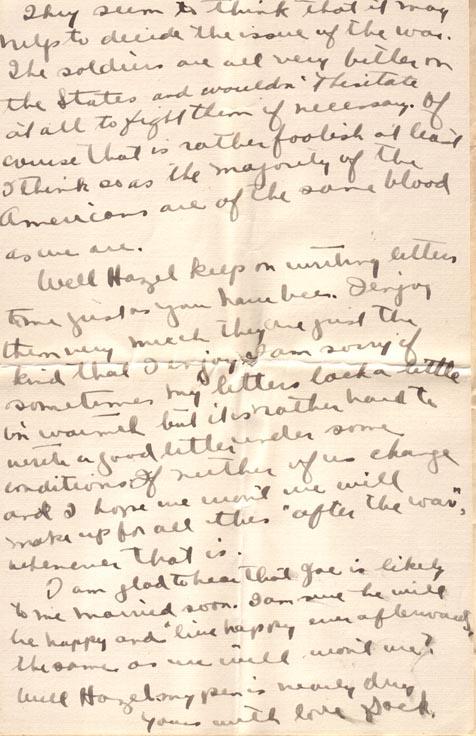 They seem to think that it may
help to decide the issue of the war.
The soldiers are all very bitter on
the States and wouldn't hesitate
at all to fight them if necessary. Of
course that is rather foolish at least
I think so as the majority of the
Americans are of the same blood
as we are.
Well Hazel keep on writing letters
to me just as you have been. I enjoy
them very much they are just the
kind that I enjoy. I am sorry if
sometimes my letters lack a little
in warmth but it is rather hard to
write a good letter under some
conditions. If neither of us change
and I hope we won't we will
make up for all this "after the war",
whenever that is.
I am glad to hear that Joe is likely
to me married soon. I am sure he will
be happy and "live happy ever afterwards
the same as we will won't we?
Well Hazel my pen is nearly dry
Yours with love Jack.